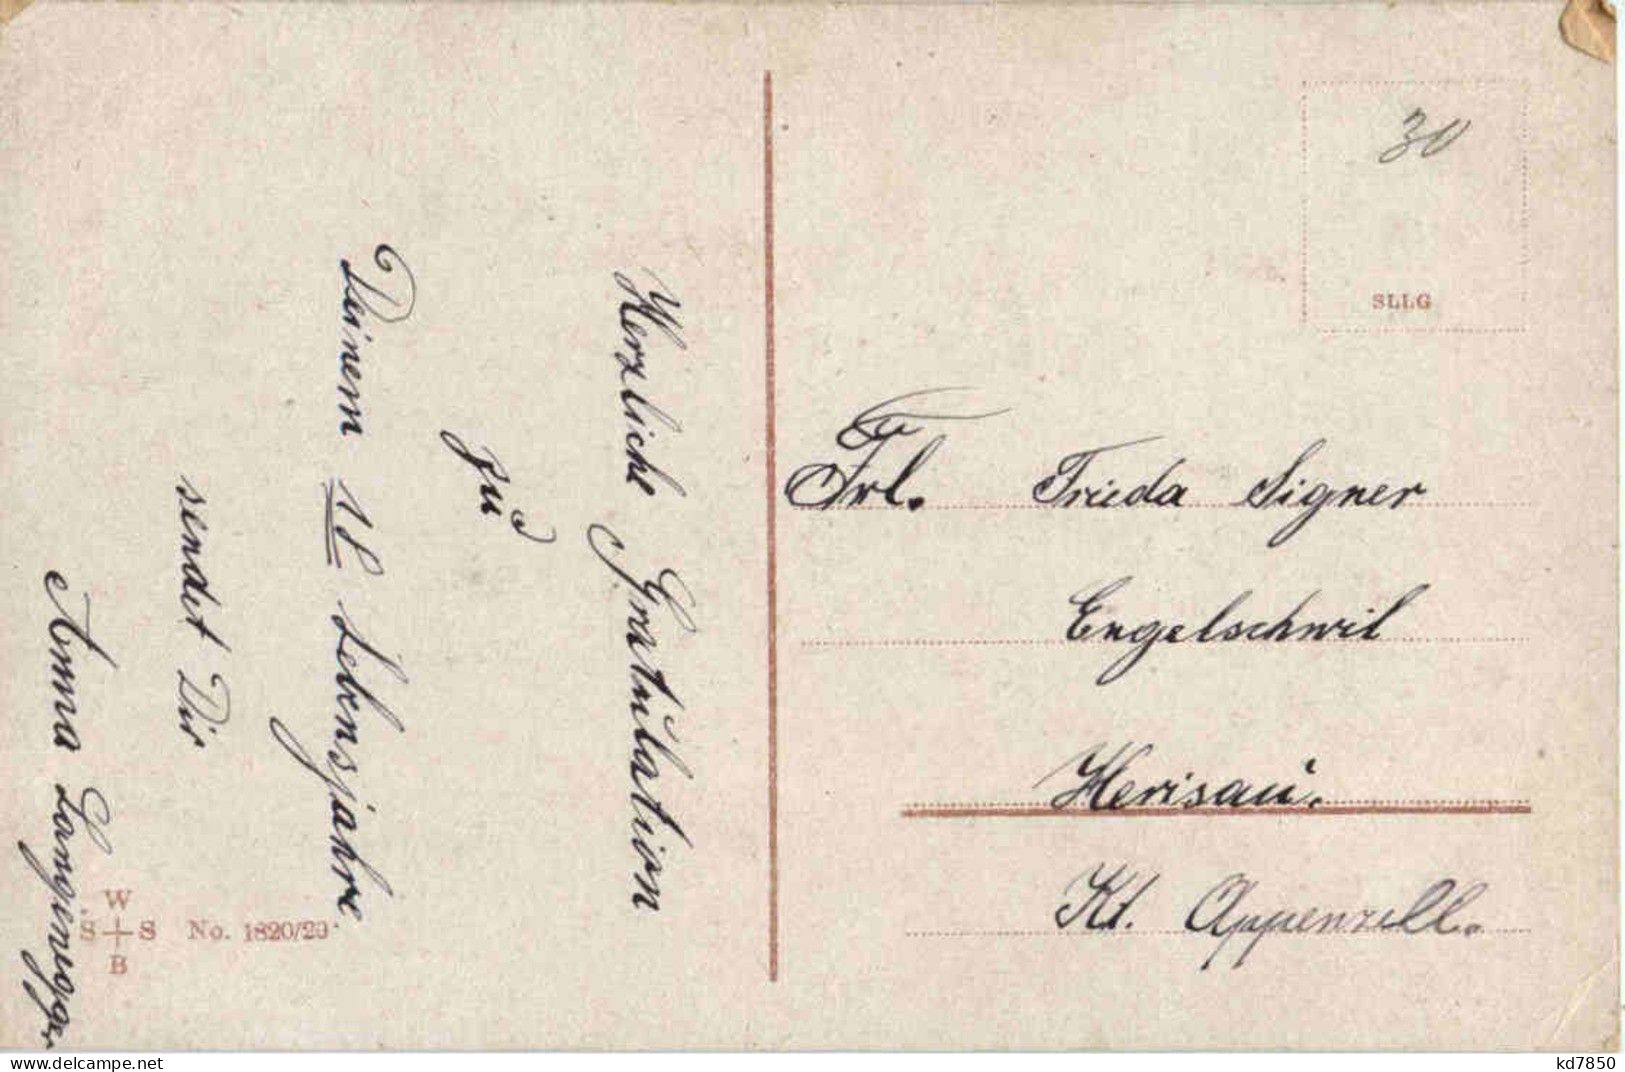 Herzliche Gratulation
zu
Deinem 18 Lebensjahre
sendet Dir
Anna Langenegger
W
S S
B
No. 1820/20
30
SLLG
Frl. Frieda Signer
Engelschwil
Herisau.
Kt. Appenzell.
https://www.delcampe.net
kd7850